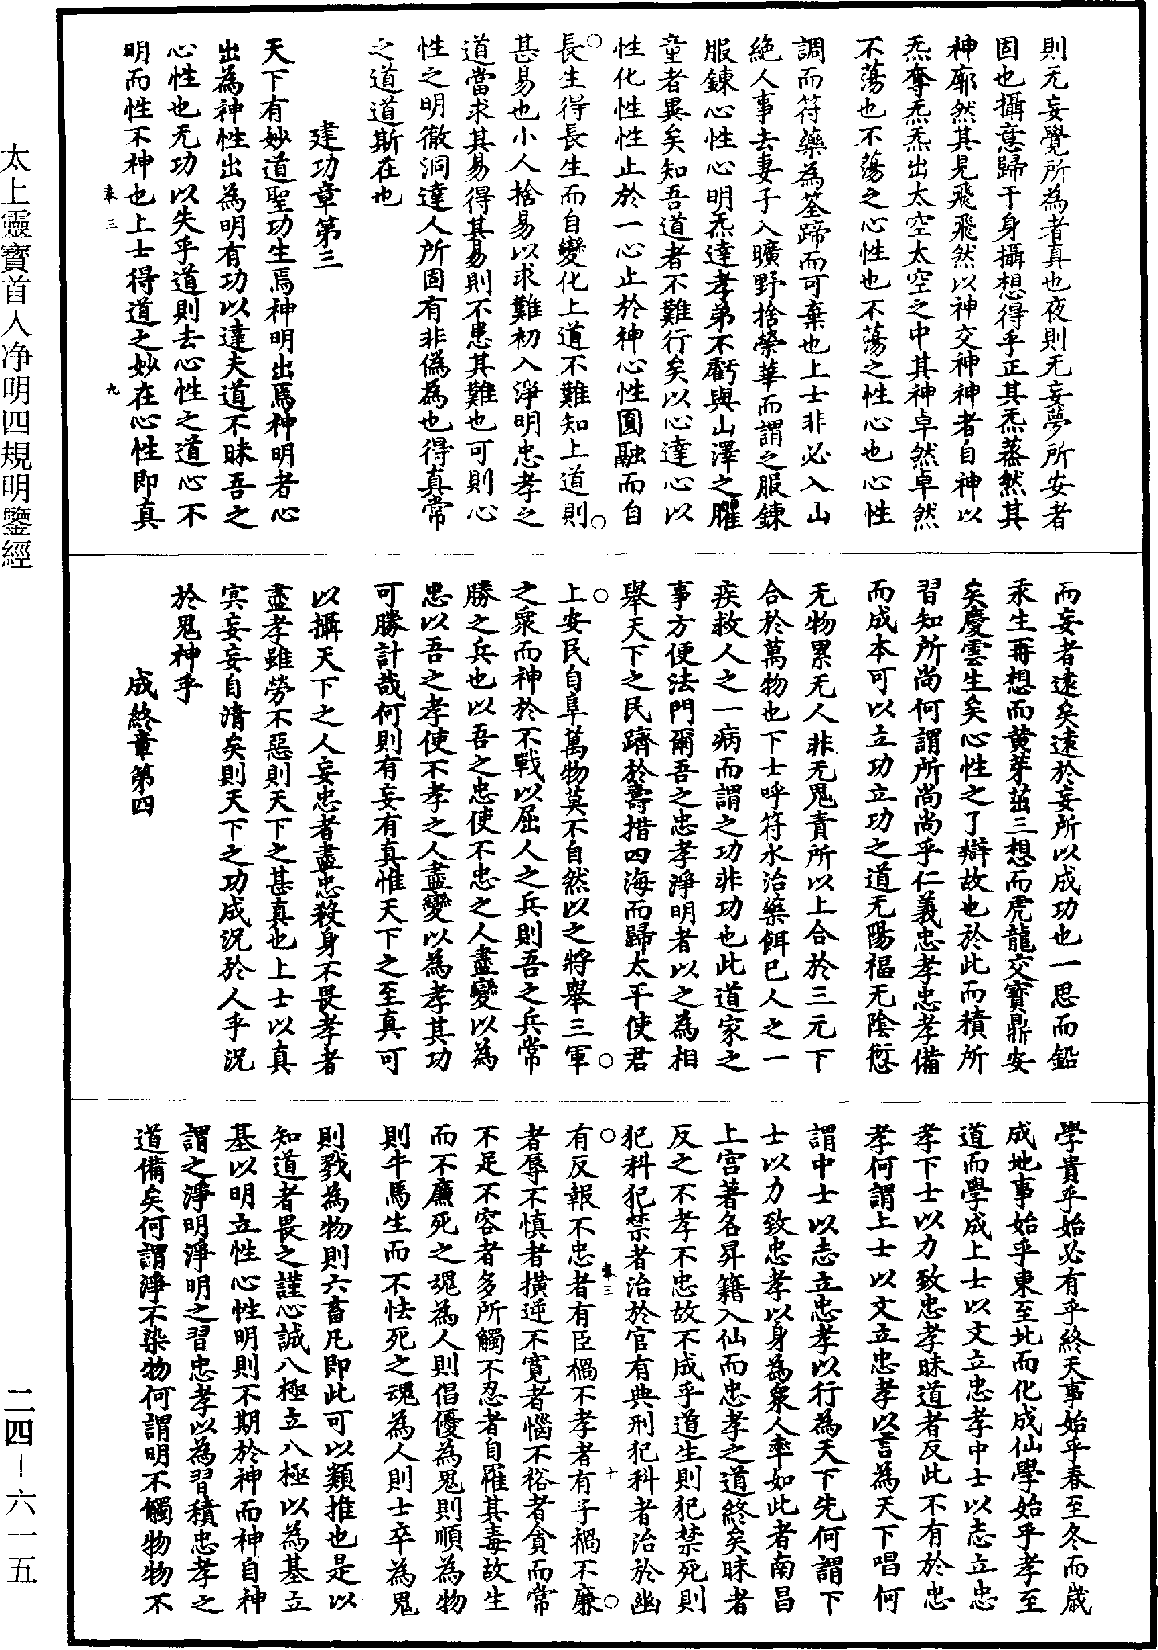 則无妄覺所為者真也夜則无妄夢所安者
固也攝意歸于身攝想得乎正其炁蒸然其
神廓然其見飛飛然以神交神神者自神以
炁奪炁炁出太空太空之中其神卓然卓然
不蕩也不蕩之心性也不蕩之性心也心性
調而符藥為筌蹄而可棄也上士非必入山
絕人事去妻子入曠野捨榮華而謂之服鍊
服鍊心性心明炁達孝弟不虧與山澤之臞
童者異矣知吾道者不難行矣以心達心以
性化性性止於一心止於神心性圓融而自
長生得長生而自變化上道不難知上道則
甚易也小人捨易以求難初入淨明忠孝之
道當求其易得其易則不患其難也可則心
性之明徹洞達人所固有非偽為也得真常
之道道斯在也
建功章第三
天下有妙道聖功生焉神明出焉神明者心
出為神性出為明有功以達夫道不昧吾之
心性也无功以失乎道則去心性之道心不
明而性不神也上士得道之妙在心性即真
而妄者遠矣遠於妄所以成功也一思而鉛
汞生再想而黃芽茁三想而虎龍交寶鼎安
矣慶雲生矣心性之了辯故也於此而積所
習知所尚何謂所尚尚乎仁義忠孝忠孝備
而成本可以立功立功之道无陽福无陰愆
无物累无人非无鬼責所以上合於三元下
合於萬物也下士呼符水治藥餌已人之一
疾救人之一病而謂之功非功也此道家之
事方便法門爾吾之忠孝淨明者以之為相
舉天下之民躋於壽措四海而歸太平使君
上安民自阜萬物莫不自然以之將舉三軍
之眾而神於不戰以屈人之兵則吾之兵常
勝之兵也以吾之忠使不忠之人盡變以為
忠以吾之孝使不孝之人盡變以為孝其功
可勝計哉何則有妄有真惟天下之至真可
以攝天下之人妄忠者盡忠殺身不畏孝者
盡孝雖勞不惡則天下之甚真也上士以真
㝠妄妄自清矣則天下之功成況於人乎況
於鬼神乎
成終章第四
學貴乎始必有乎終天事始乎春至冬而歲
成地事始乎東至北而化成仙學始乎孝至
道而學成上士以文立忠孝中士以志立忠
孝下士以力致忠孝昧道者反此不有於忠
孝何謂上士以文立忠孝以言為天下唱何
謂中士以志立忠孝以行為天下先何謂下
士以力致忠孝以身為眾人率如此者南昌
上宮著名昇籍入仙而忠孝之道終矣昧者
反之不孝不忠故不成乎道生則犯禁死則
犯科犯禁者治於官有典刑犯科者治於幽
有反報不忠者有臣禍不孝者有子禍不廉
者辱不慎者橫逆不寬者惱不裕者貪而常
不足不容者多所觸不忍者自罹其毒故生
而不廉死之魂為人則倡優為鬼則順為物
則牛馬生而不怯死之魂為人則士卒為鬼
則戮為物則六畜凡即此可以類推也是以
知道者畏之謹心誠八極立八極以為基立
基以明立性心性明則不期於神而神自神
謂之淨明淨明之習忠孝以為習積忠孝之
道備矣何謂淨不染物何謂明不觸物物不
太上靈寶首入净明四規明鑒經
二四－六一五